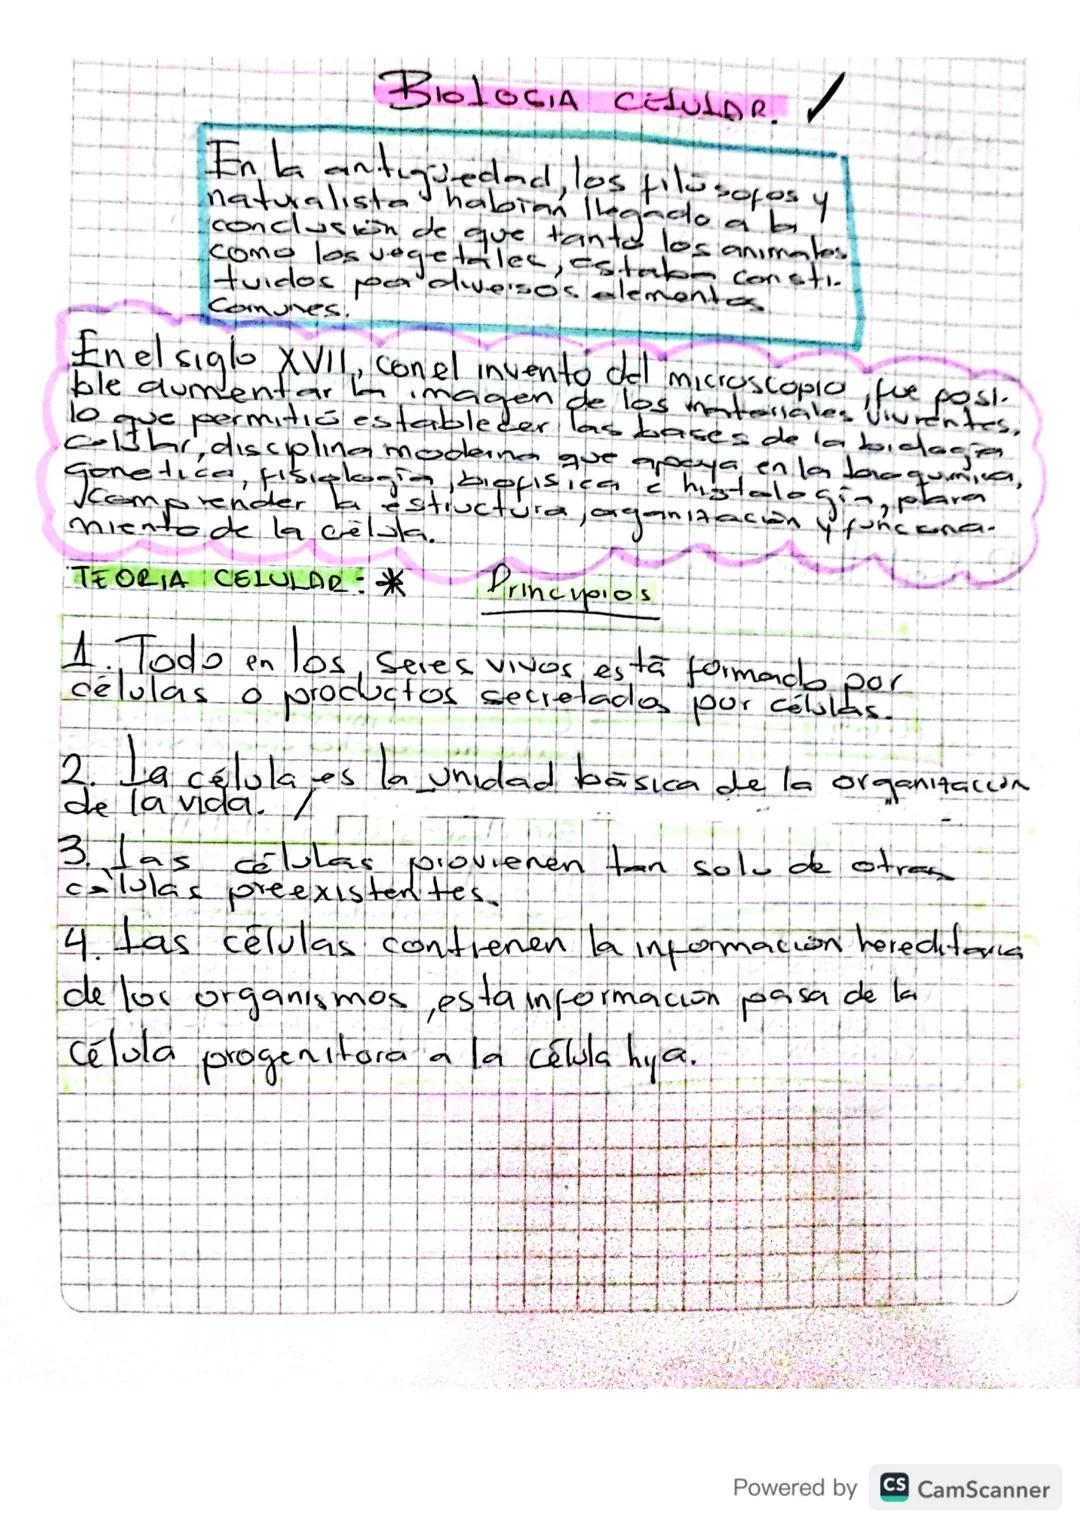 BIOLOGIA CELULAR.
En la antigüedad, los filósofos y
naturalista habían llegado a la
conclusión de que tanto los animales
como los vegetales, estaban consti-
tuidos por diversos elementos
comunes.
En el siglo XVII, con el invento del microscopio, fue posi-
ble aumentar la imagen de los materiales vivientes,
lo que permitió establecer las bases de la biología
celular, disciplina moderna que apoya en la bioquímica,
genetica, fisiología, biofísica e histología, para
comprender la estructura, organización y funciona-
miento de la célula.
TEORIA CELULAR: * Principios
1. Todo en los seres vivos está formado por
células o productos secretados por células.
2. La célula es la unidad básica de la organización
de la vida.
3. Las células provienen tan solo de otras
células preexistentes.
4. Las células contienen la información hereditaria
de los organismos, esta información pasa de la
célula progenitora a la célula hija.
Powered by CS CamScanner